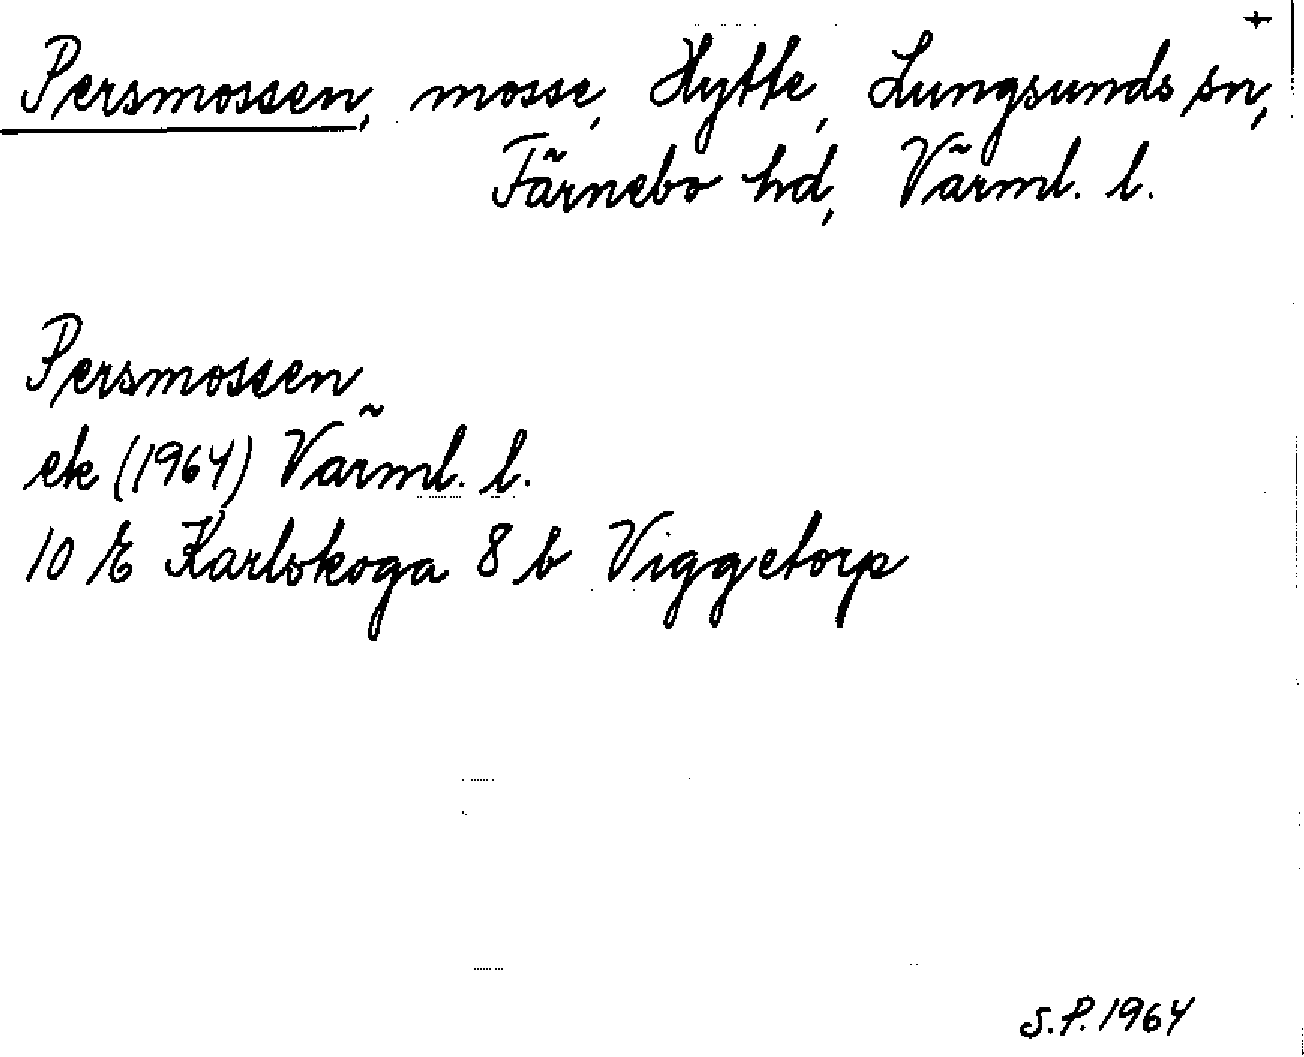 +
Persmossen, mosse, Hytte, Lungsunds sn,
Färnebo hd, Värml. l.
Persmossen
ek (1964) Värml. l.
10 E Karlskoga 8 b Viggetorp
S.P. 1964